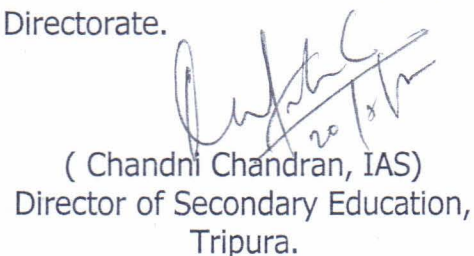 Directorate.
( Chandni Chandran, IAS)
Director of Secondary Education,
Tripura.